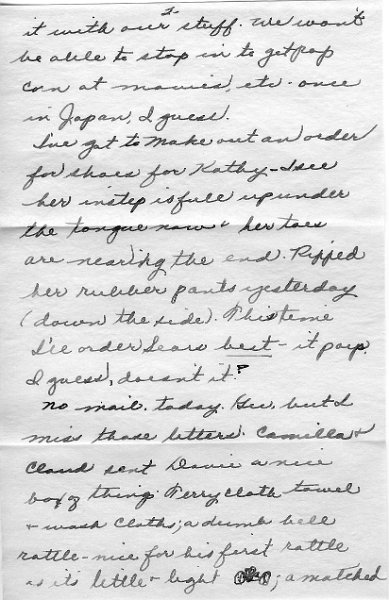 2
it with our stuff. We won't
be able to stop in to get pop
corn at movies, etc. once
in Japan, I guess.
I've got to make out an order
for shoes for Kathy - I see
her instep is full up under
the tongue now & her toes
are nearing the end. Ripped
her rubber pants yesterday
(down the side). This time
I'll order Sears best - it pays
I guess, doesn't it?
No mail today. Gee, but I
miss those letters. Camilla &
Claud sent Davie a nice
box of things: Terry cloth towel
& wash cloths; a dumb bell
rattle - nice for his first rattle
as its little & light ; a matched